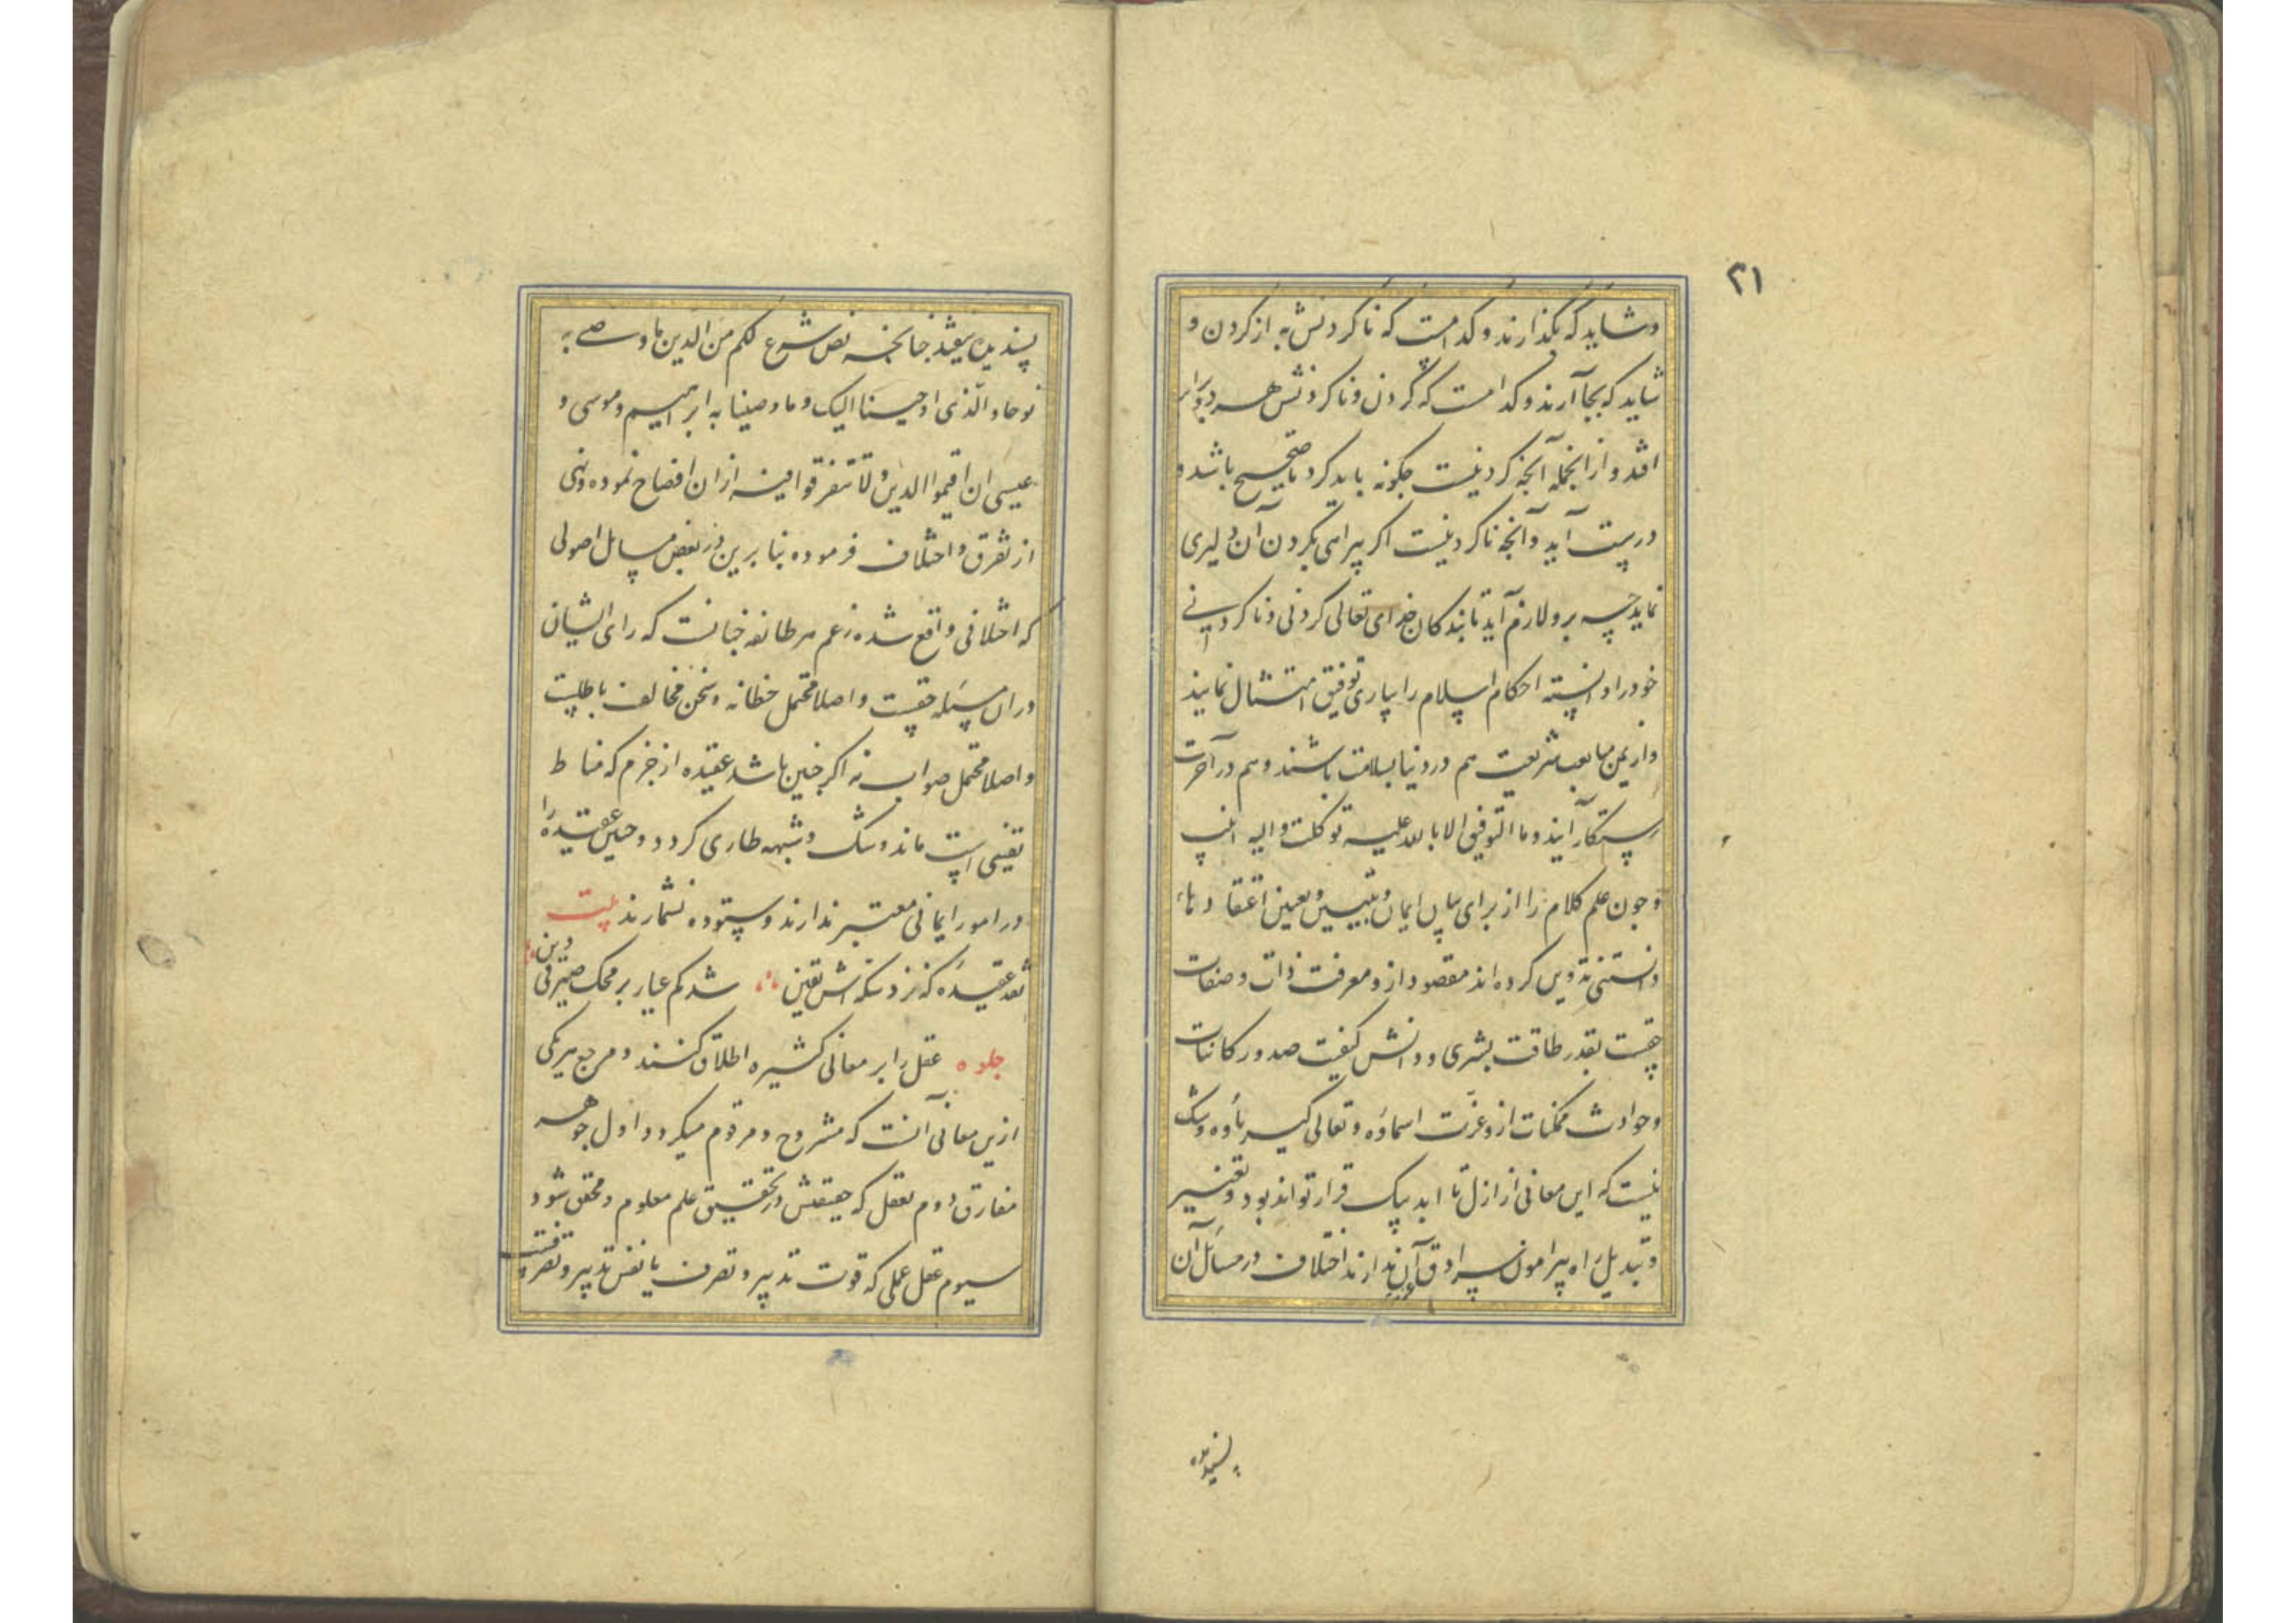 ۳۱
وشاید که بگذارند وکدامست که ناکردنش به از کردن و
شاید که بجا آرند وکدامست که کردن وناکردنش هر دو برابر
افتد و از انجمله آنجه کردنیست جکونه باید کرد تا صحیح باشد و
درست آید وآنجه ناکردنیست اکر پیرامن کردن آن دلیری
نماید چه برو لازم آید تا بندکان خدای تعالی کردنی وناکردنی
خود را دانسته احکام اسلام را بیاری توفیق امتثال نمایند
واز یمن متابعت شریعت هم در دنیا بسلامت باشند وهم در آخرت
رستکار آیند وما التوفیق الا بالله علیه توکلت والیه انیب
وجون علم کلام را از برای بیان ایمان وتبیین وتعیین اعتقادهاء
دانستنی تدوین کرده اند مقصود ازو معرفت ذات وصفات
حقست بقدر طاقت بشری ودانش کیفیت صدور کاینات
وحوادث ممکنات ازو عزت اسماؤه وتعالی کبریاؤه وشک
نیست که این معانی از ازل تا ابد بیک قرار تواند بود وتغییر
وتبدیل راه پیرامون سرادق آن ندارند اختلاف در مسائل آن
پسندیده
پسندیده نیفتد جنانجه نص شرع لکم من الدین ما وصی به
نوحا والذی اوحینا الیک وما وصینا به ابراهیم وموسی و
عیسی ان اقیموا الدین ولا تتفرقوا فیه ازان افصاح نموده ونهی
از تفرق واختلاف فرموده بنابرین در بعض مسایل اصولی
که اختلافی واقع شده زعم هر طائفه جنانست که رای ایشان
دران مسئله حقست واصلا محتمل خطا نه وسخن مخالف باطلست
واصلا محتمل صواب نه اکر جنین باشد عقیده از جزم که مناط
یقینی است ماند وشک وشبهه طاری کردد وجنین عقیده را
در امور ایمانی معتبر ندارند وستوده نشمارند بیت
نقد عقیده که نزد سکه اش یقین شد کم عیار بر محک صیرفی دین
جلوه عقل را بر معانی کثیره اطلاق کنند ومرجع هریکی
ازین معانی آنست که مشروح ومرقوم میکردد اول جوهر
مفارق دوم تعقل که حقیقتش در تحقیق علم معلوم ومحقق شود
سیوم عقل عملی که قوت تدبیر وتصرف یا نفس تدبیر وتصرفست